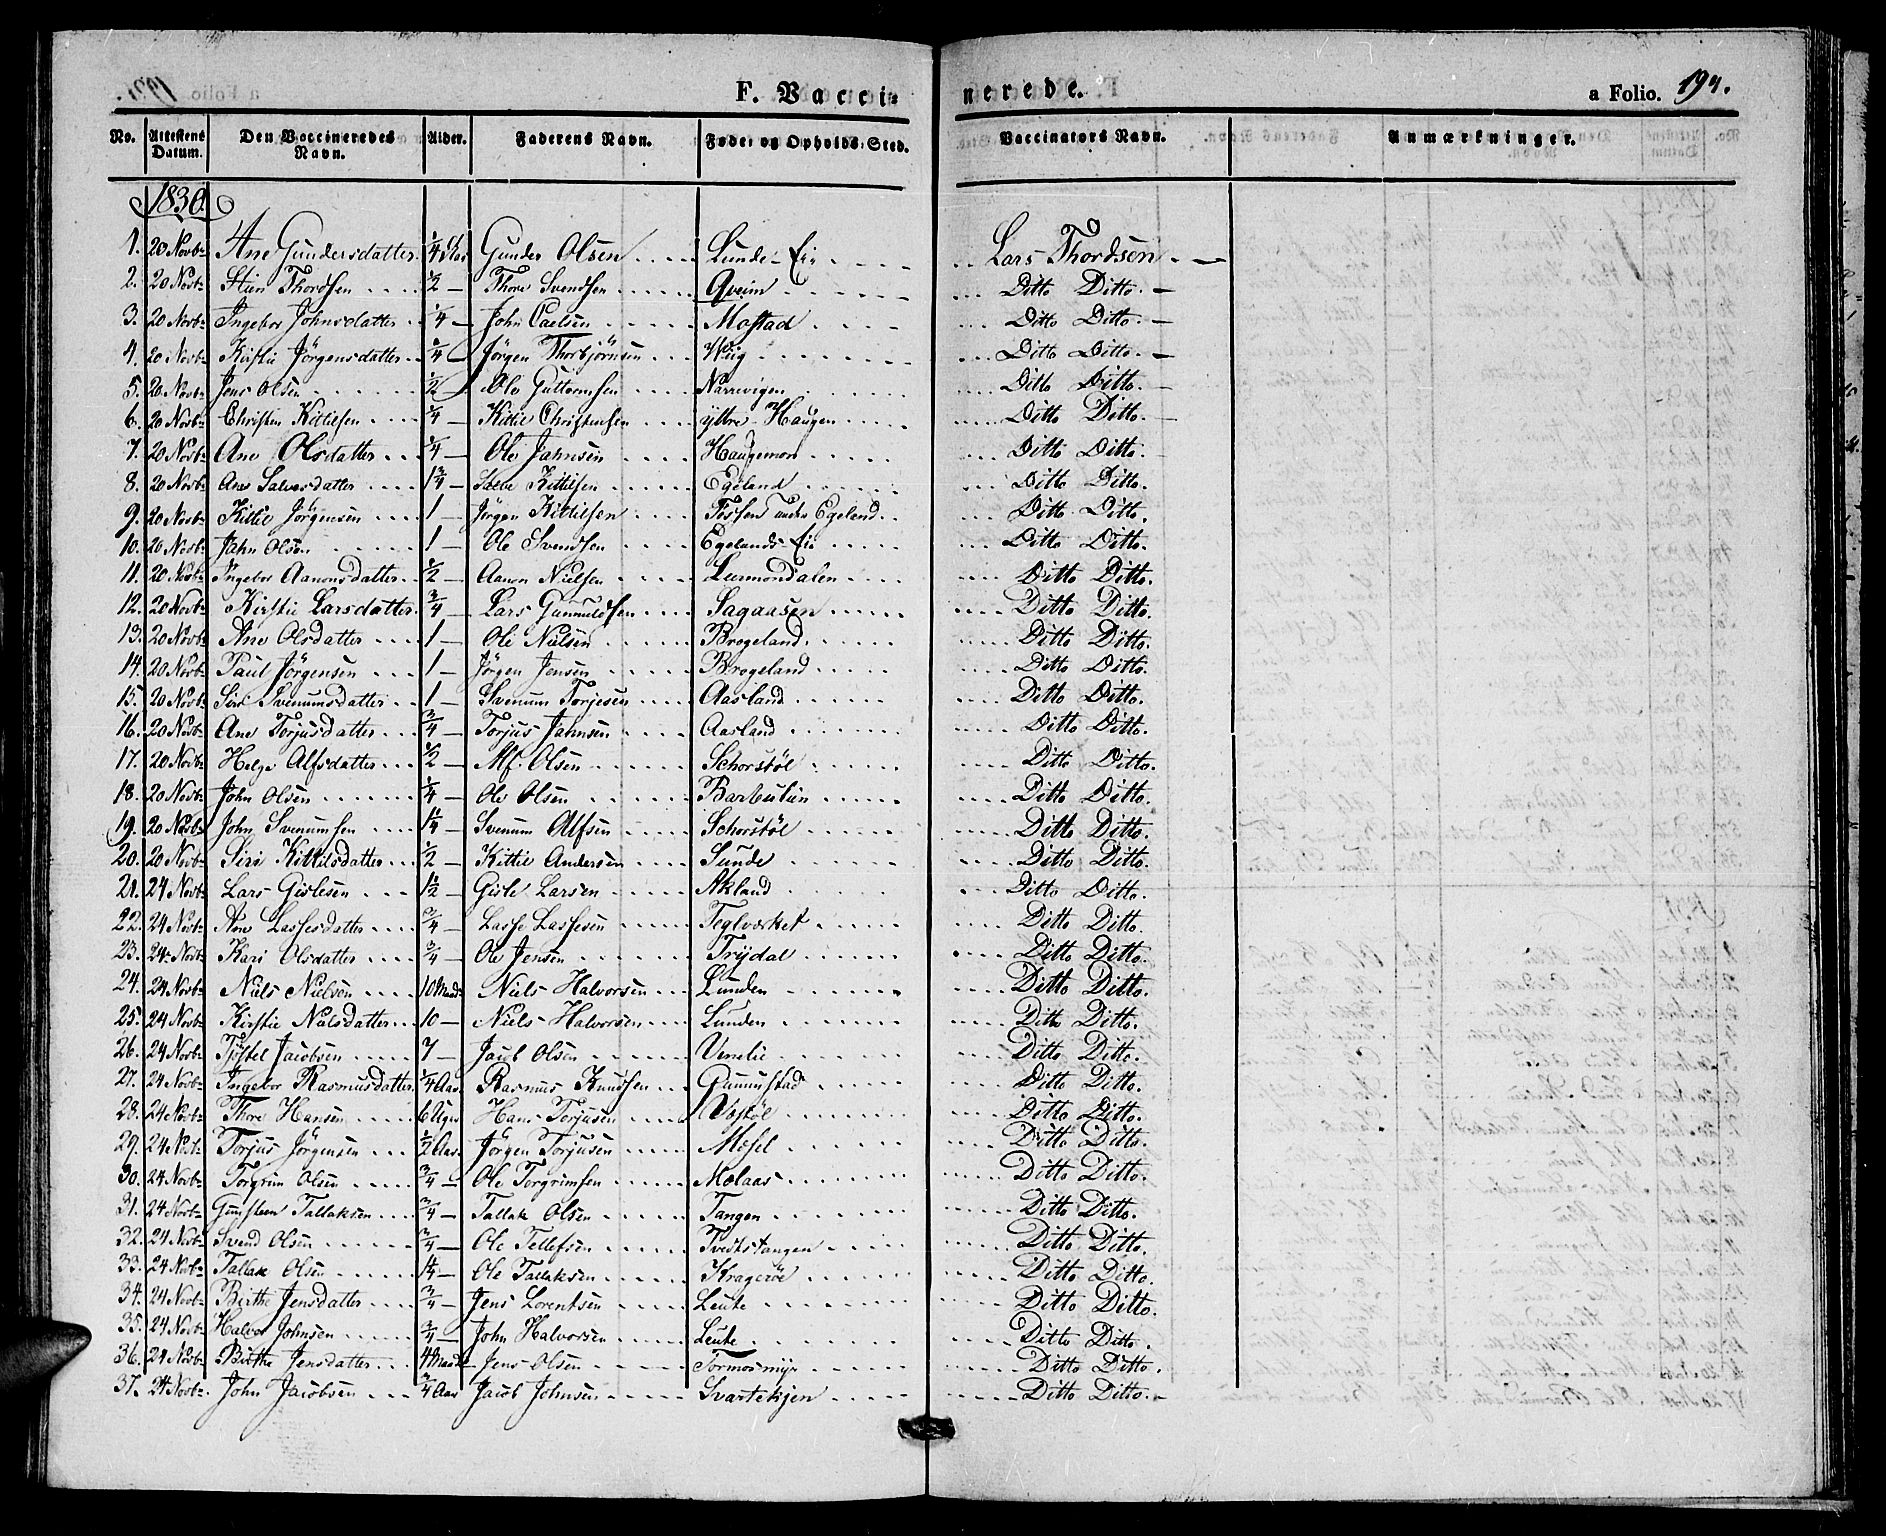 F. Vaccinerede. a Folio. 194.
No. Attestens Datum. Den Vaccineredes Navn. Alder. Faderens Navn. Føde- og Opholds-Sted. Vaccinators Navn. Anmærkninger.
1830
1. 20 Novbr Ane Gundersdatter ¼ Gunder Olsen Lunde-Eie Lars Thordsen
2. 20 Novbr Thordsen ½ Thore Svendsen Qveim Ditto Ditto.
3. 20 Novbr Ingebor Johnsdatter ¼ John Mostad Ditto Ditto.
4. 20 Novbr Kirstie Jörgensdatter ¾ Jörgen Thorbjörnsen Wiig Ditto Ditto.
5. 20 Novbr Jens Olsen ½ Ole Guttormsen Narrevigen Ditto Ditto.
6. 20 Novbr Christen Kittilsen ¼ Kittil Christensen yttre Haugen Ditto Ditto.
7. 20 Novbr Ane Olsdatter ¼ Ole Jahnsen Haugemoen Ditto Ditto.
8. 20 Novbr Ane Salvesdatter 1¾ Kittilsen Egeland Ditto Ditto.
9. 20 Novbr Kittil Jörgensen 1 Jörgen Kittilsen under Egeland Ditto Ditto.
10. 20 Novbr Jahn Olsen 1 Ole Svendsen Egelands Eie Ditto Ditto.
11. 20 Novbr Ingebor Aanonsdatter ½ Aanon Nielsen Ditto Ditto.
12. 20 Novbr Kirstie Larsdatter ¾ Lars Gunnuldsen Sagaasen Ditto Ditto.
13. 20 Novbr Ane Olsdatter 1 Ole Nielsen Brogeland Ditto Ditto.
14. 20 Novbr Paul Jörgensen 1 Jörgen Jensen Brogeland Ditto Ditto.
15. 20 Novbr Siri Svenumsdatter 1 Svenum Torjesen Aasland Ditto Ditto.
16. 20 Novbr Ane Torjusdatter ¾ Torjus Jahnsen Aasland Ditto Ditto.
17. 20 Novbr Helge Alfsdatter ½ Alf Olsen Schorstöl Ditto Ditto.
18. 20 Novbr John Olsen ¼ Ole Olsen Ditto Ditto.
19. 20 Novbr John Svenumsen 1¼ Svenum Alfsen Schorstöl Ditto Ditto.
20. 20 Novbr Siri Kittilsdatter ½ Kittil Andersen Sunde Ditto Ditto.
21. 24 Novbr Lars Gislesen 1½ Gisle Larsen Akland Ditto Ditto.
22. 24 Novbr Ane Lassesdatter ¾ Lasse Lassesen Teglverket Ditto Ditto.
23. 24 Novbr Kari Olsdatter ¾ Ole Jensen Trydal Ditto Ditto.
24. 24 Novbr Niels Nielsen 10 Maad. Niels Halvorsen Lunden Ditto Ditto.
25. 24 Novbr Kirstie Nielsdatter 10 Niels Halvorsen Lunden Ditto Ditto.
26. 24 Novbr Tjöstel Jacobsen 7 Jacob Olsen Vinelie Ditto Ditto.
27. 24 Novbr Ingebor Rasmusdatter ¼ Aar Rasmus Knudsen Gumunstad Ditto Ditto.
28. 24 Novbr Thore Hansen 6 Uger Hans Torjusen Vastöl Ditto Ditto.
29. 24 Novbr Torjus Jörgensen ½ Aar Jörgen Torjusen Mosel Ditto Ditto.
30. 24 Novbr Torgrim Olsen ¾ Ole Torgrimsen Molaas Ditto Ditto.
31. 24 Novbr Gunsteen Tallaksen ¾ Tallak Olsen Tangen Ditto Ditto.
32. 24 Novbr Svend Olsen ¾ Ole Tellefsen Tvedtstangen Ditto Ditto.
33. 24 Novbr Tallak Olsen 1¼ Ole Tallaksen Kragerøe Ditto Ditto.
34. 24 Novbr Birthe Jensdatter ¾ Jens Lorentsen Leute Ditto Ditto.
35. 24 Novbr Halvor Johnsen ¾ John Halvorsen Leute Ditto Ditto.
36. 24 Novbr Birthe Jensdatter 4 Maad. Jens Olsen Tormosmyr Ditto Ditto.
37. 24 Novbr John Jacobsen ¾ Aar Jacob Johnsen Svartekjen Ditto Ditto.